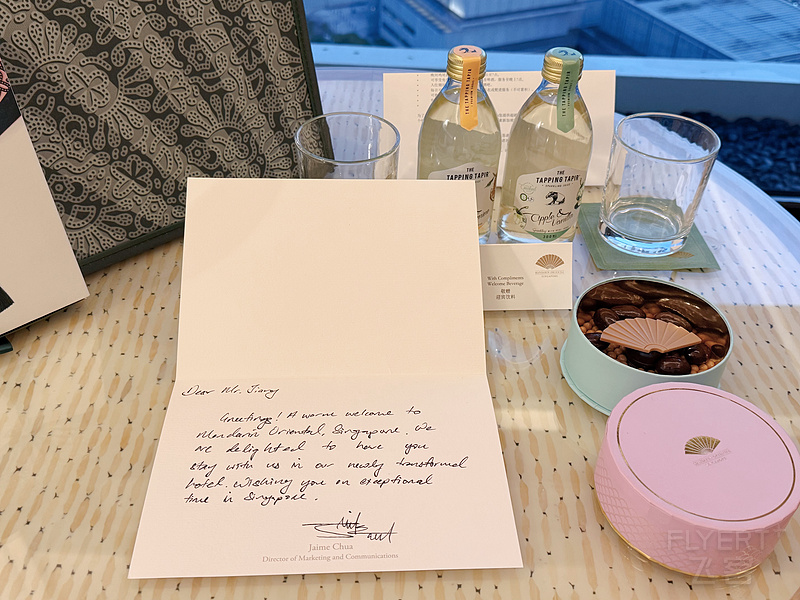 THE TAPPING TAPIR
THE TAPPING TAPIR
THE
TAPPING TAPIR
THE
TAPPING TAPIR
SPARKLING SODA
Apple &
With Compliments
Welcome Beverage
敬赠
迎宾饮料
MANDARIN ORIENTAL
Dear Mr. Jiang
Greetings! A warm welcome to
Mandarin Oriental, Singapore. We
are delighted to have you
stay with us in our newly transformed
hotel. Wishing you an exceptional
time in Singapore.
Jaime Chua
Director of Marketing and Communications
MANDARIN ORIENTAL
FLYERT
飞客